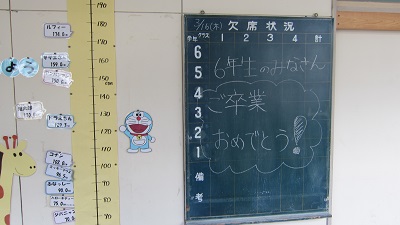 ルフィー
174.0cm
ドラえもん
129.3
コナン
ふなっしー
190
180
170
160
150
140
130
120
110
100
90
80
70
3/16(木) 欠席状況
学年 クラス 1 2 3 4 計
6
5
4
3
2
1
備考
6年生のみなさん
ご卒業
おめでとう!